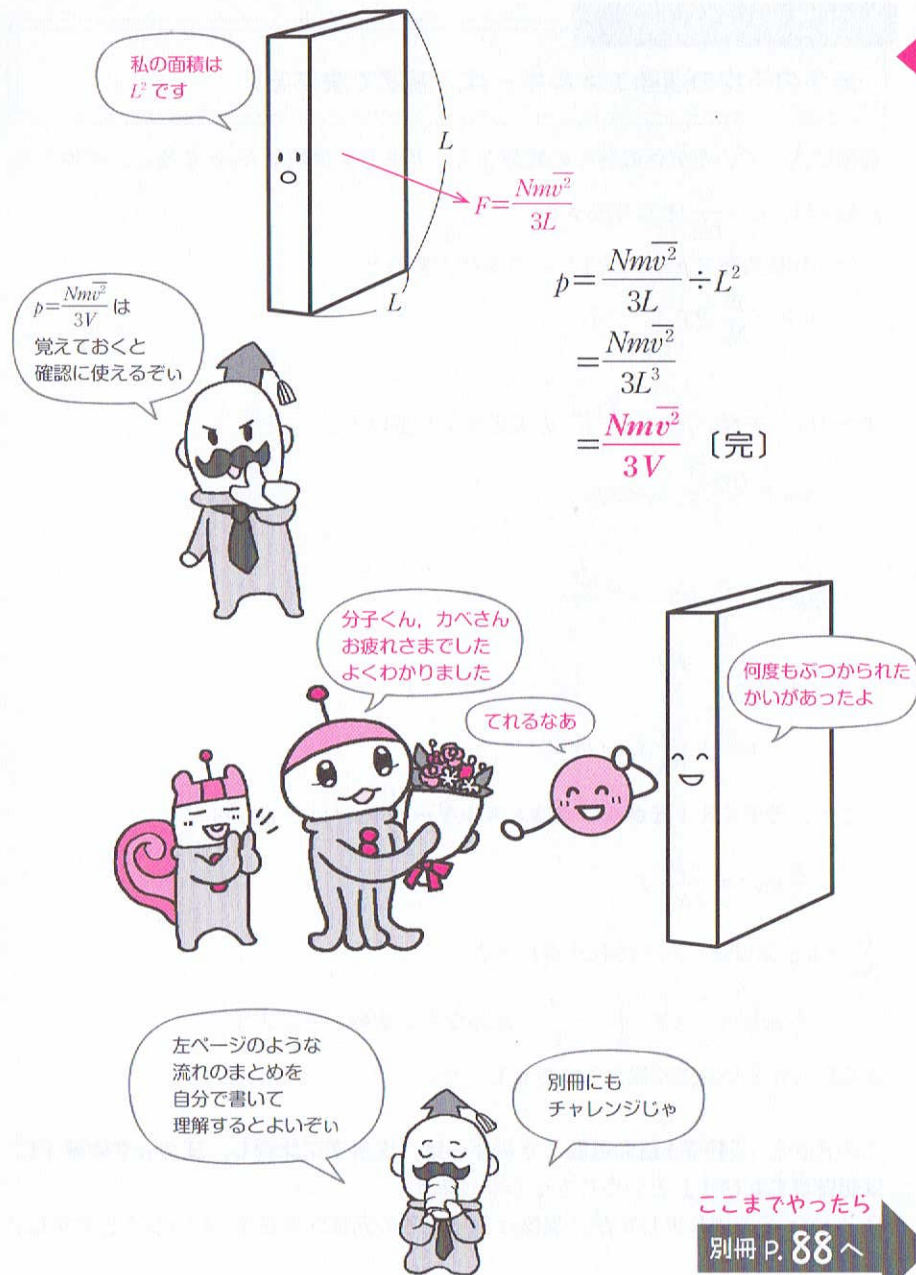 私の面積は
L²です
L
L
F=\frac{Nm\overline{v^2}}{3L}
p=\frac{Nm\overline{v^2}}{3L}÷L²
=\frac{Nm\overline{v^2}}{3L³}
=\frac{Nm\overline{v^2}}{3V} 〔完〕
p=\frac{Nm\overline{v^2}}{3V} は
覚えておくと
確認に使えるぞぃ
分子くん，カベさん
お疲れさまでした
よくわかりました
てれるなあ
何度もぶつかられた
かいがあったよ
左ページのような
流れのまとめを
自分で書いて
理解するとよいぞぃ
別冊にも
チャレンジじゃ
ここまでやったら
別冊 P. 88 へ